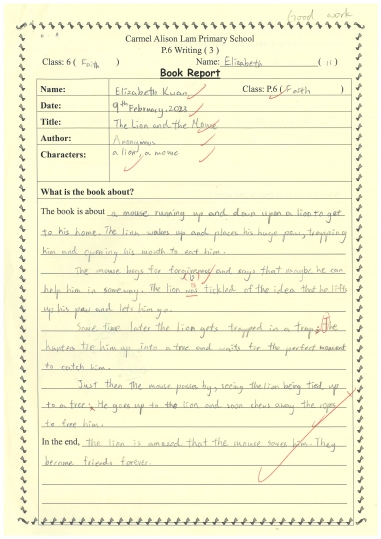 Good work.
Carmel Alison Lam Primary School
P.6 Writing ( 3 )
Class: 6 ( Faith ) Name: Elizabeth ( 11 )
Book Report
Name: Elizabeth Kwan Class: P.6 ( Faith )
Date: 9th February, 2023
Title: The Lion and the Mouse
Author: Anonymous
Characters: a lion, a mouse
What is the book about?
The book is about a mouse running up and down upon a lion to get
to his home. The lion wakes up and places his huge paw, trapping
him and opening his mouth to eat him.
The mouse begs for forgiveness and says that maybe he can
help him in someway. The lion was tickled of the idea that he lifts
up his paw and lets him go.
Some time later the lion gets trapped in a trap. The
hunters tie him up into a tree and waits for the perfect moment
to catch him.
Just then the mouse passes by, seeing the lion being tied up
to a tree. He goes up to the lion and soon chews away the ropes
to free him.
In the end, the lion is amazed that the mouse saves him. They
become friends forever.